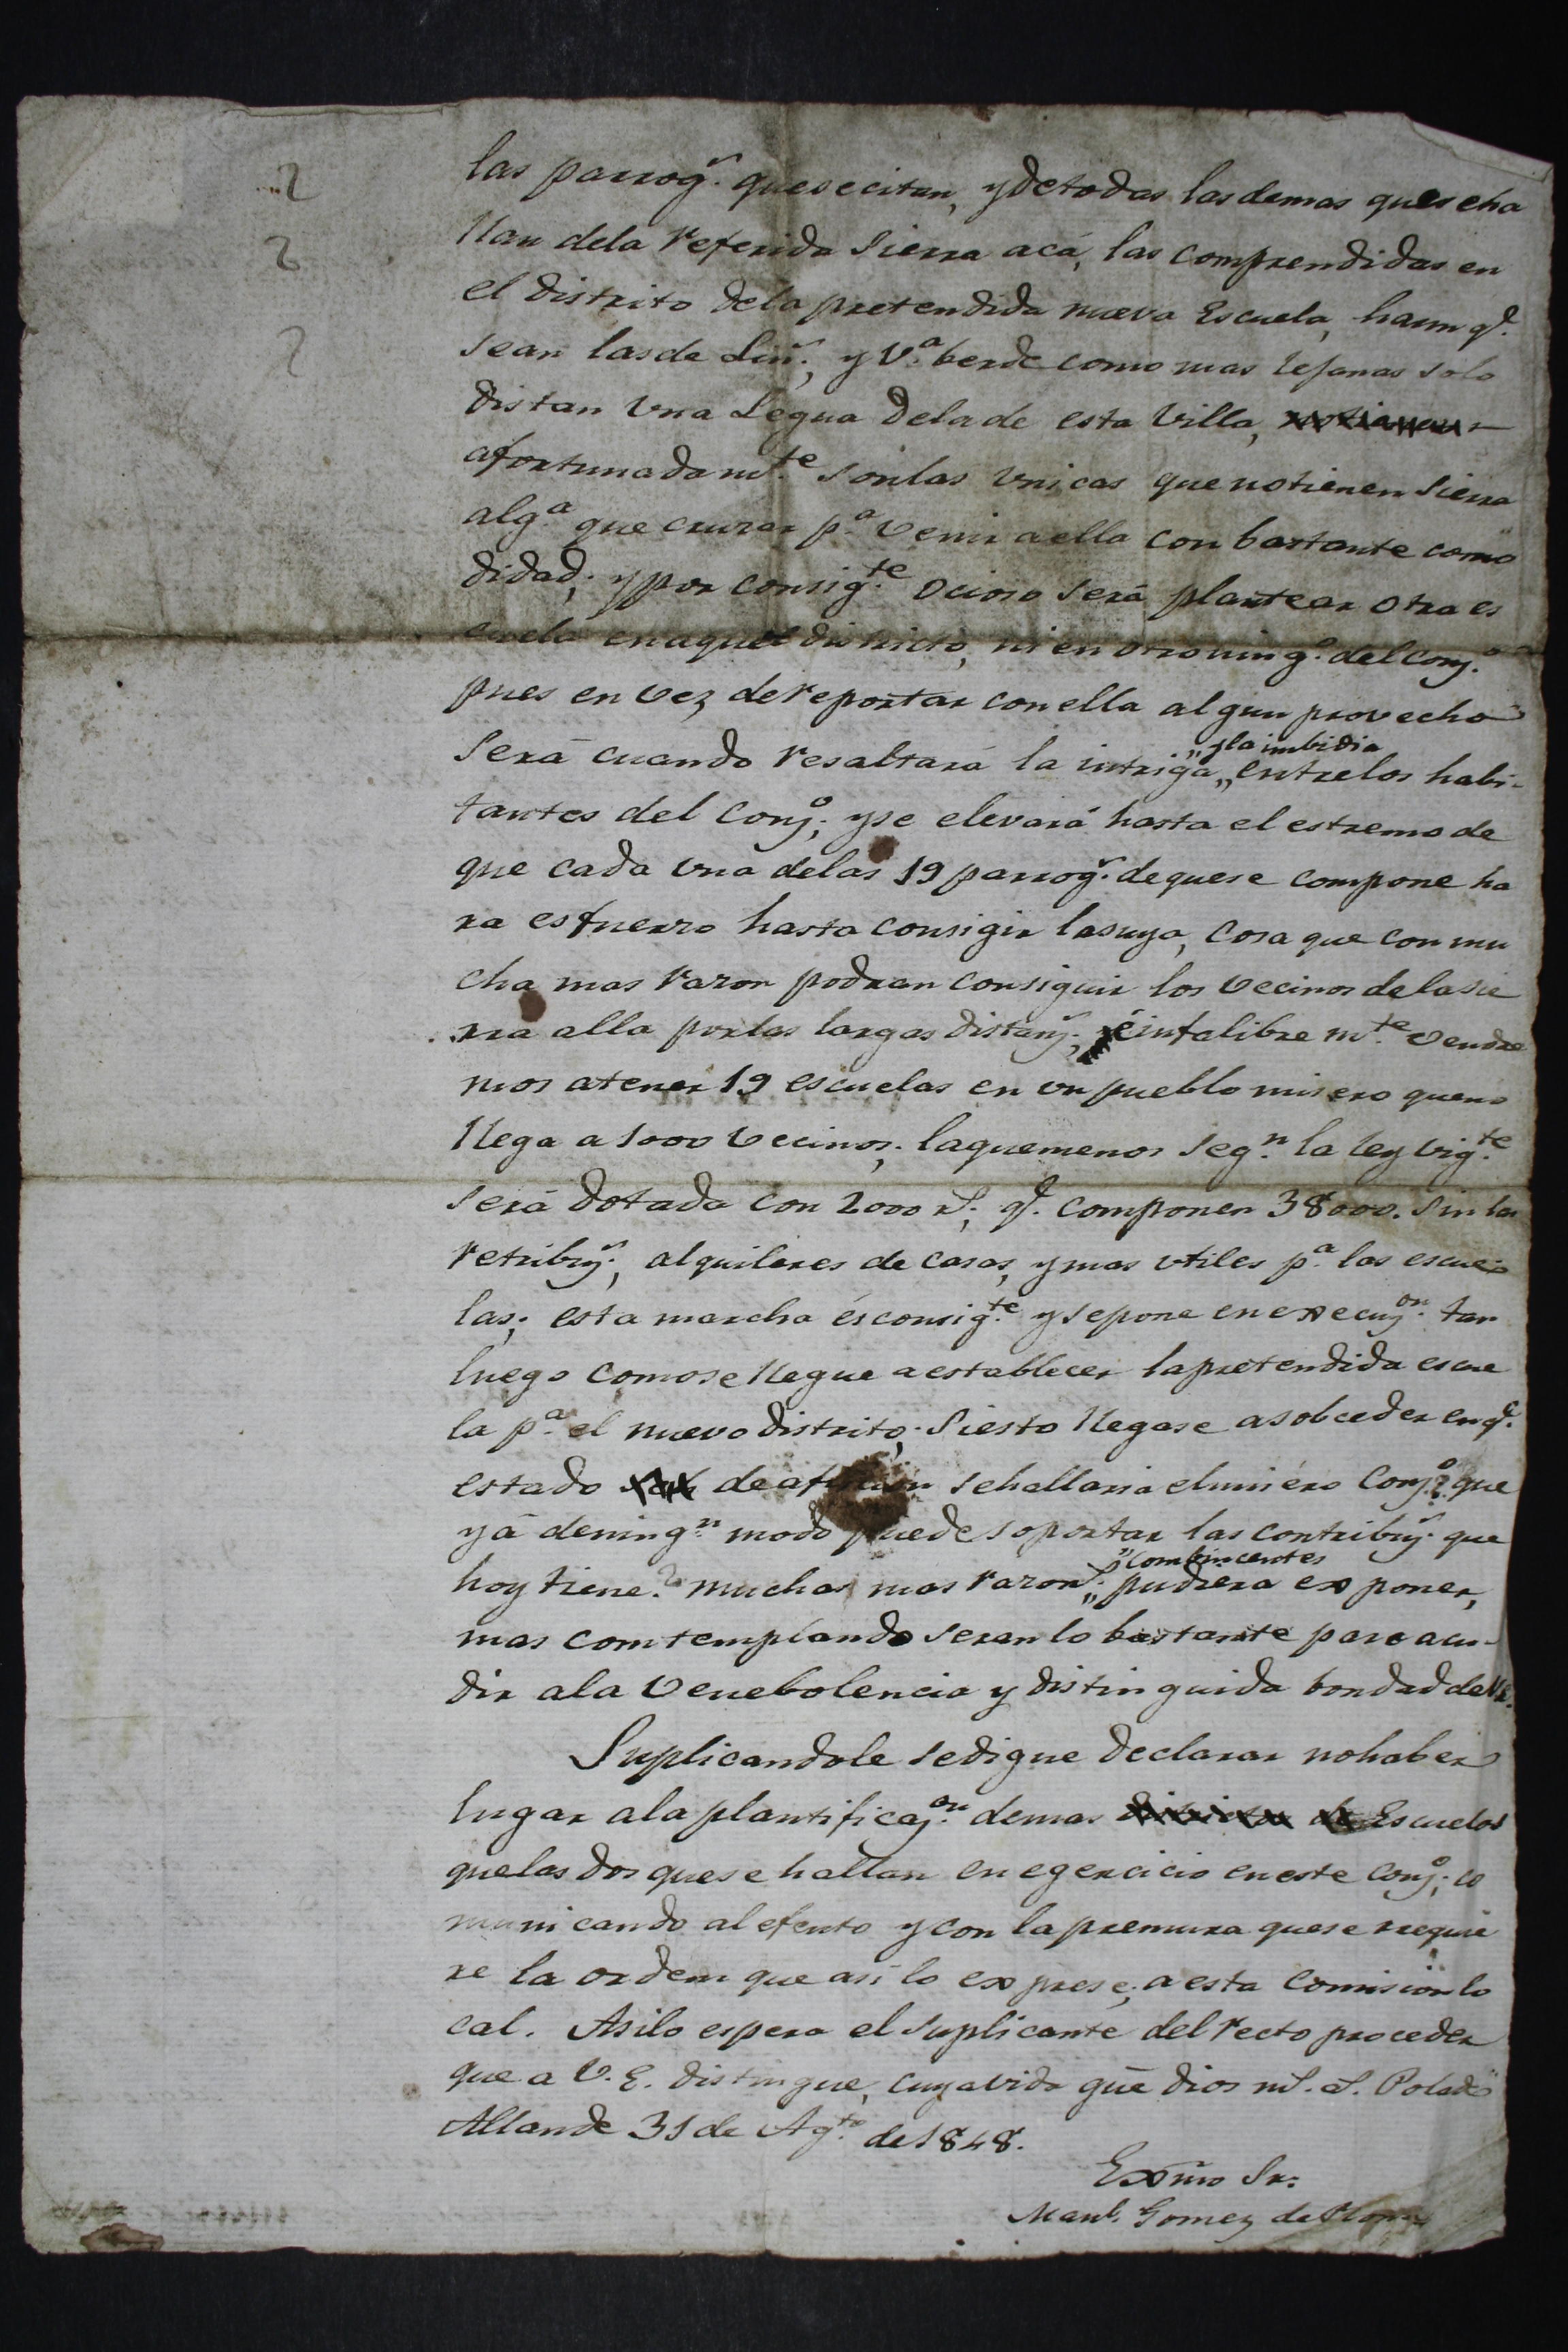 las parroq.s quesecitan, ydetodas lasdemas queseha
llan dela referida Sierra acá, las comprendidas en
el distrito dela pretendida nueva Escuela, haun q.e
sean lasde Lin.s, y V.a berde como mas lejanas solo
distan una Legua delade esta Villa,
afortunadam.te sonlas unicas quenotienen Sierra
alg.a que cruzar p.a venir aella con bastante como
didad; ypor consig.te ocioso será plantear otra es
cuela enaquel districto, ni en otroning.o del conz.o
pues en vez dereportar conella algun provecho
Será cuando resaltará la intriga „yla imbidia„ entrelos habi-
tantes del Conz.o; yse elevará hasta el estremo de
que cada una delas 19 parroq.s dequese compone ha
ra esfuerzo hasta consigir lasuya, cosa que con mu
cha mas razon podran consiguir los vecinos delasie
rra alla porlas largas distanz.s, é infalibrem.te vendre
mos atener 19 escuelas en un pueblo misero queno
llega a 1000 vecinos; laquemenos seg.n la ley vig.te
será dotada con 2000 r.s; q.e componen 38000. sin las
retribuz.s, alquileres de casas, ymas utiles p.a las escue
las; esta marcha és consig.te ysepone en execuz.on tan
luego comose llegue aestablecer lapretendida escue
la p.a el nuevo distrito; Siesto llegase asobceder enq.e
estado de sehallaria elmiséro Conz.o? que
yá dening.n modo puede soportar las contribuz.s que
hoy tiene? muchas mas razon.s „combincentes„ pudiera exponer,
mas comtemplando seran lo bastante para acu-
dir ala Venebolencia y distinguida bondad deV.E.
Suplicandole sedigne declarar nohaber
lugar ala plantificaz.on demas Escuelas
quelas dos quese hallan en egercicio eneste conz.o; co
municando al efecto ycon la premura quese requie
re la orden que así lo exprese; a esta Comision lo
cal. Asilo espera el suplicante del recto proceder
que a V.E. distingue, cuyavida gũe dios m.s a.s Polade
Allande 31 de Ag.to de 1848.
Exmo Sr.
Manl. Gomez de